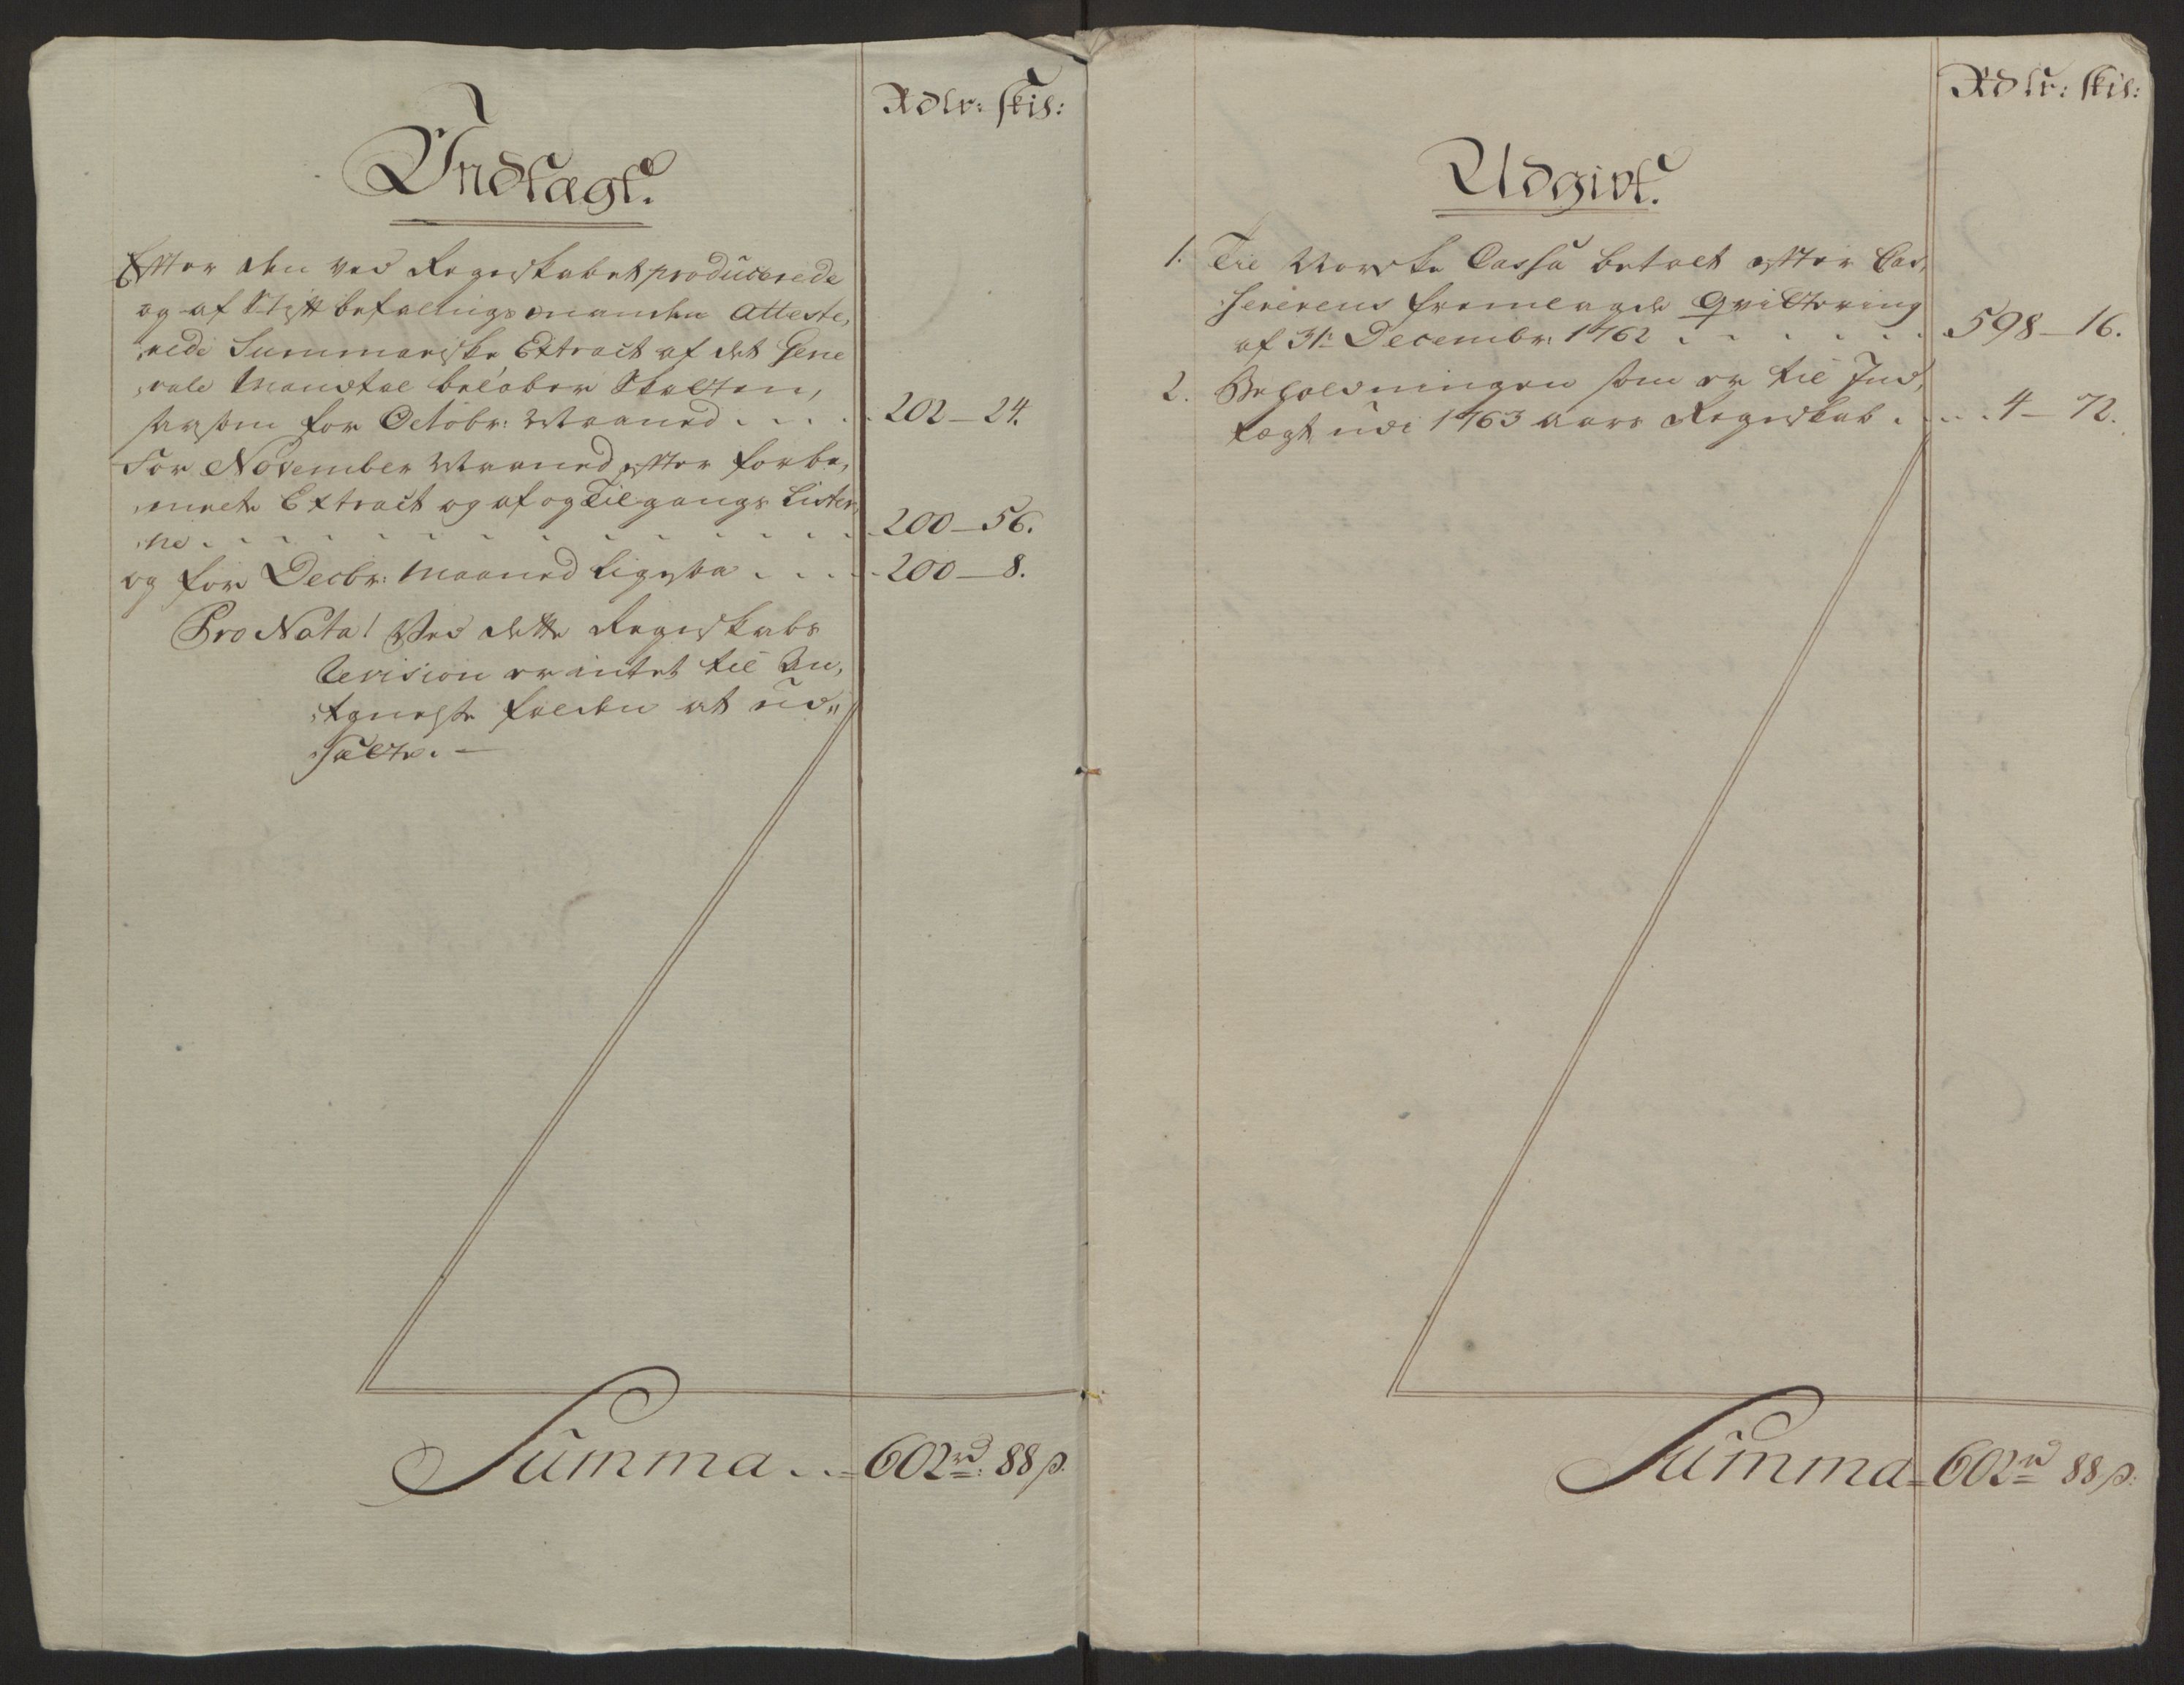 Rdlr: skil:
Indtægt.
Efter den ved Regnskabet producerede
og af Stiftbefalingsmanden Atteste,
,rede Summariske Extract af det Gene
,rale Mandtal beløber Skatten,
saasom for Octobr: Maaned . . . . 202 - 24.
For November Maaned efter forbe,
,meldte Extract og af og Tilgangs Lister,
,ne . . . . . . . . . . . . . 200 - 56.
og for Decbr: Maaned ligesaa . . . . 200 - 8.
Pro Nota! Ved dette Regnskabs
Revision er intet til An,
,tegnelse falden at ud,,
,sætte. -
Summa . . = 602 rd: 88 s.
Rdlr: skil:
Udgivt.
1. Til Norske Cassa betalt efter Cas,
sererens fremlagde Qvittering
af 31. Decembr: 1762 . . . . . . 598 - 16.
2. Beholdningen som er til Ind,
tægt udi 1763 aars Regnskab . . . . 4 - 72.
Summa = 602 rd 88 s: